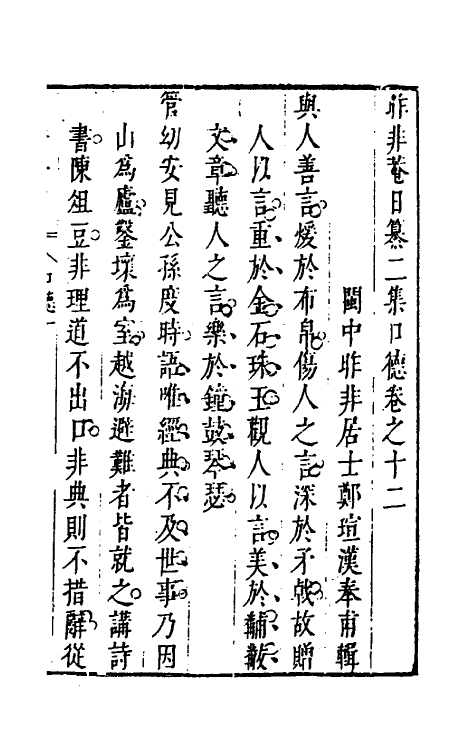 昨非菴日纂二集口德卷之十二
閩中昨非居士鄭瑄漢奉甫輯
與人善言煖於布帛傷人之言深於矛戟故贈
人以言重於金石珠玉觀人以言美於黼黻
文章聽人之言樂於鐘鼓琴瑟
管幼安見公孫度時語唯經典不及世事乃因
山為廬鑿壞為室越海避難者皆就之講詩
書陳俎豆非理道不出口非典則不措辭從